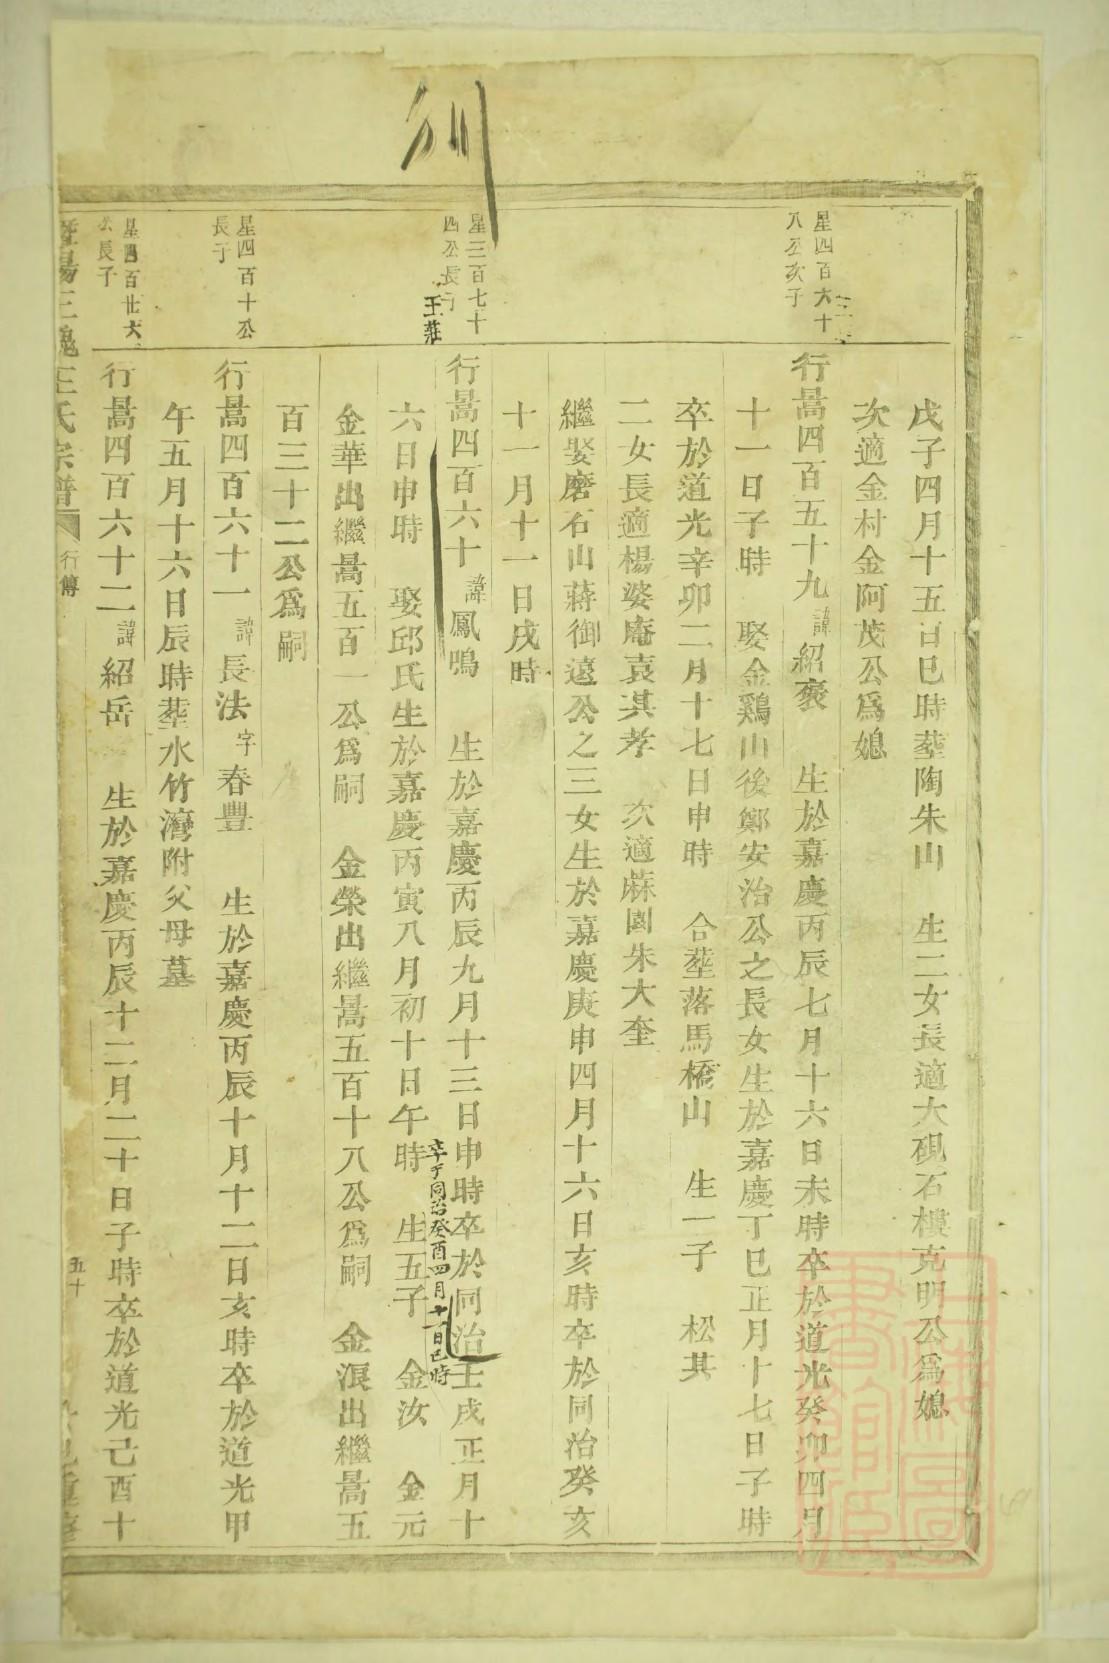 戊子四月十五日巳時塟陶朱山　生二女長適大硯石樓克明公爲媳
次適金村金阿茂公爲媳
星四百六十
八公次子
行暠四百五十九諱紹褒　生於嘉慶丙辰七月十六日未時卒於道光癸卯四月
十一日子時　娶金鷄山後鄭安治公之長女生於嘉慶丁巳正月十七日子時
卒於道光辛卯二月十七日申時　合塟落馬橋山　生一子　松其
二女長適楊婆庵袁淇孝　次適蔴園朱大奎
繼娶磨石山蔣御遠公之三女生於嘉慶庚申四月十六日亥時卒於同治癸亥
十一月十一日戌時
星三百七十
四公長子
王莊
行暠四百六十諱鳳鳴　生於嘉慶丙辰九月十三日申時卒於同治壬戌正月十
六日申時　娶邱氏生於嘉慶丙寅八月初十日午時　生五子　金汝　金元
卒于同治癸酉四月十一日巳時
金華出繼暠五百一公爲嗣　金榮出繼暠五百十八公爲嗣　金浪出繼暠五
百三十二公爲嗣
星四百十公
長子
行暠四百六十一諱長法字春豐　生於嘉慶丙辰十月十二日亥時卒於道光甲
午五月十六日辰時塟水竹灣附父母墓
星四百廿六
公長子
行暠四百六十二諱紹岳　生於嘉慶丙辰十二月二十日子時卒於道光己酉十
暨陽三槐王氏宗譜
行傳
五十